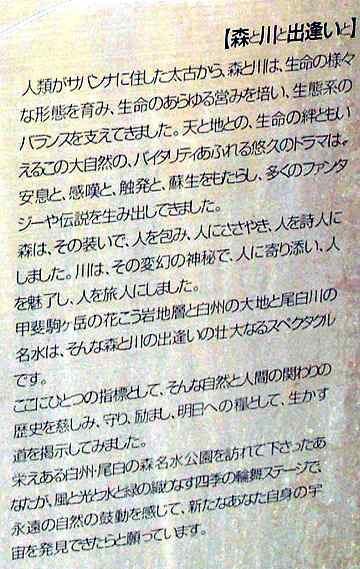 【森と川と出逢いと】
人類がサバンナに住した太古から、森と川は、生命の様々
な形態を育み、生命のあらゆる営みを培い、生態系の
バランスを支えてきました。天と地との、生命の絆ともい
えるこの大自然の、バイタリティあふれる悠久のドラマは、
安息と、感嘆と、触発と、蘇生をもたらし、多くのファンタ
ジーや伝説を生み出してきました。
森は、その装いで、人を包み、人にささやき、人を詩人に
しました。川は、その変幻の神秘で、人に寄り添い、人
を魅了し、人を旅人にしました。
甲斐駒ヶ岳の花こう岩地層と白州の大地と尾白川の
名水は、そんな森と川の出逢いの壮大なるスペクタクル
です。
ここにひとつの指標として、そんな自然と人間の関わりの
歴史を慈しみ、守り、励まし、明日への糧として、生かす
道を掲示してみました。
栄えある白州・尾白の森名水公園を訪れて下さったあ
なたが、風と光と水と緑の織りなす四季の輪舞ステージで、
永遠の自然の鼓動を感じて、新たなあなた自身の宇
宙を発見できたらと願っています。